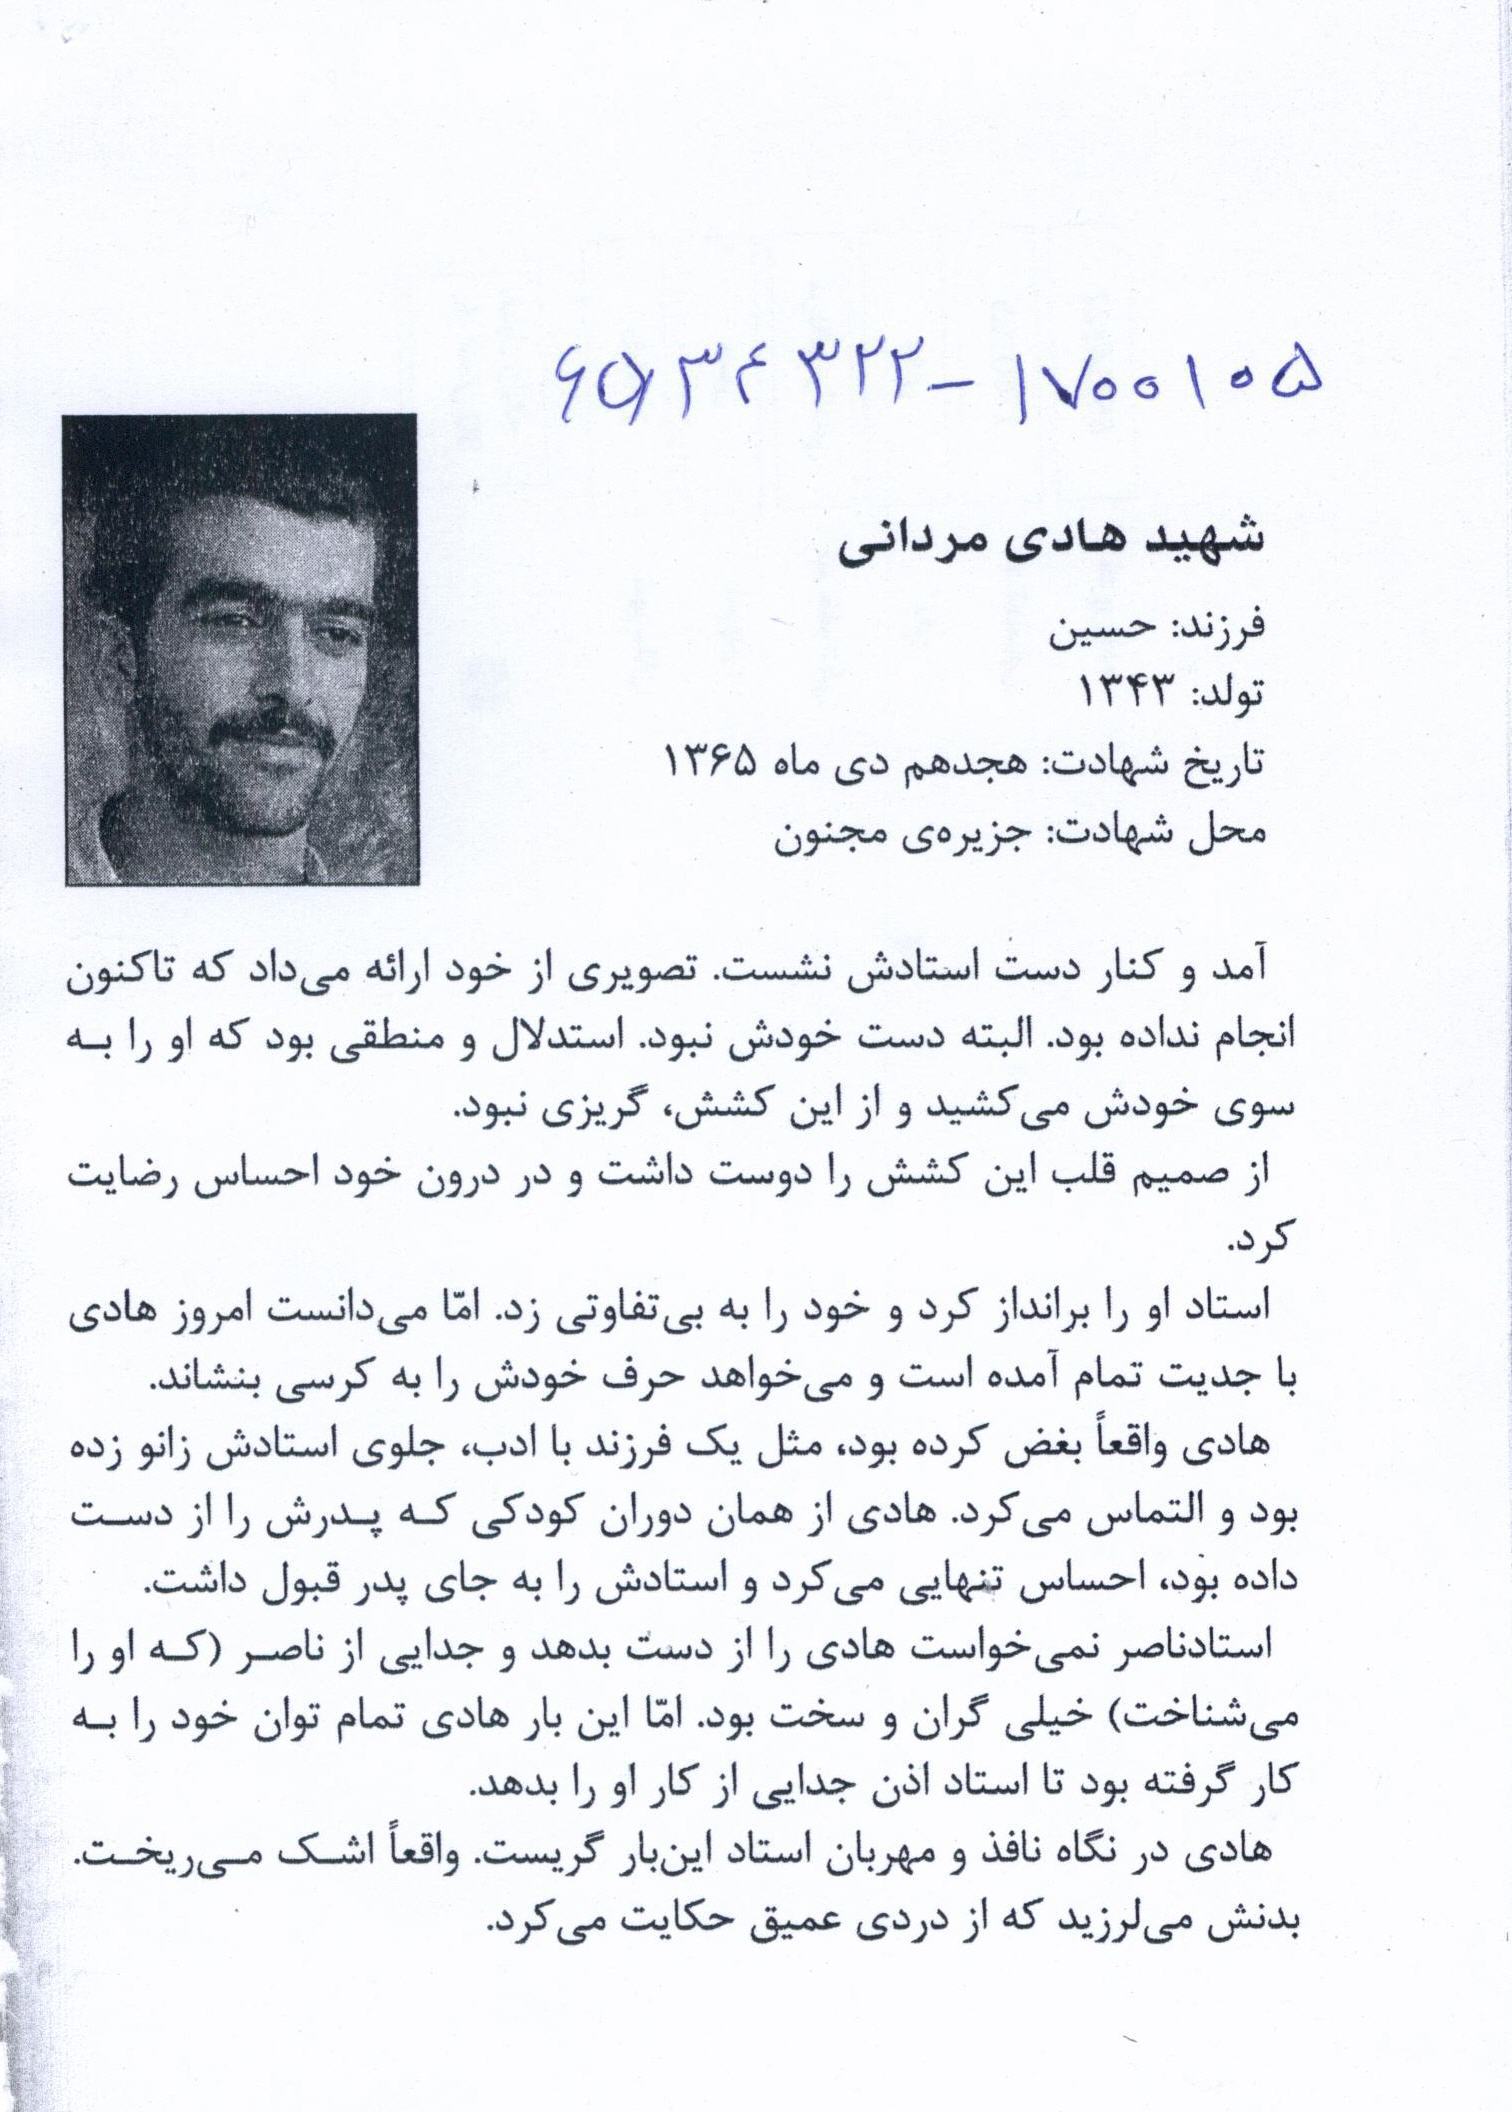 ۶۵۳۴۳۲۲-۱۷۰۰۱۰۵
شهید هادی مردانی
فرزند: حسین
تولد: ۱۳۴۳
تاریخ شهادت: هجدهم دی ماه ۱۳۶۵
محل شهادت: جزیره‌ی مجنون
آمد و کنار دست استادش نشست. تصویری از خود ارائه می‌داد که تاکنون
انجام نداده بود. البته دست خودش نبود. استدلال و منطقی بود که او را به
سوی خودش می‌کشید و از این کشش، گریزی نبود.
از صمیم قلب این کشش را دوست داشت و در درون خود احساس رضایت
کرد.
استاد او را برانداز کرد و خود را به بی‌تفاوتی زد. امّا می‌دانست امروز هادی
با جدیت تمام آمده است و می‌خواهد حرف خودش را به کرسی بنشاند.
هادی واقعاً بغض کرده بود، مثل یک فرزند با ادب، جلوی استادش زانو زده
بود و التماس می‌کرد. هادی از همان دوران کودکی که پدرش را از دست
داده بود، احساس تنهایی می‌کرد و استادش را به جای پدر قبول داشت.
استادناصر نمی‌خواست هادی را از دست بدهد و جدایی از ناصر (که او را
می‌شناخت) خیلی گران و سخت بود. امّا این بار هادی تمام توان خود را به
کار گرفته بود تا استاد اذن جدایی از کار او را بدهد.
هادی در نگاه نافذ و مهربان استاد این‌بار گریست. واقعاً اشک می‌ریخت.
بدنش می‌لرزید که از دردی عمیق حکایت می‌کرد.